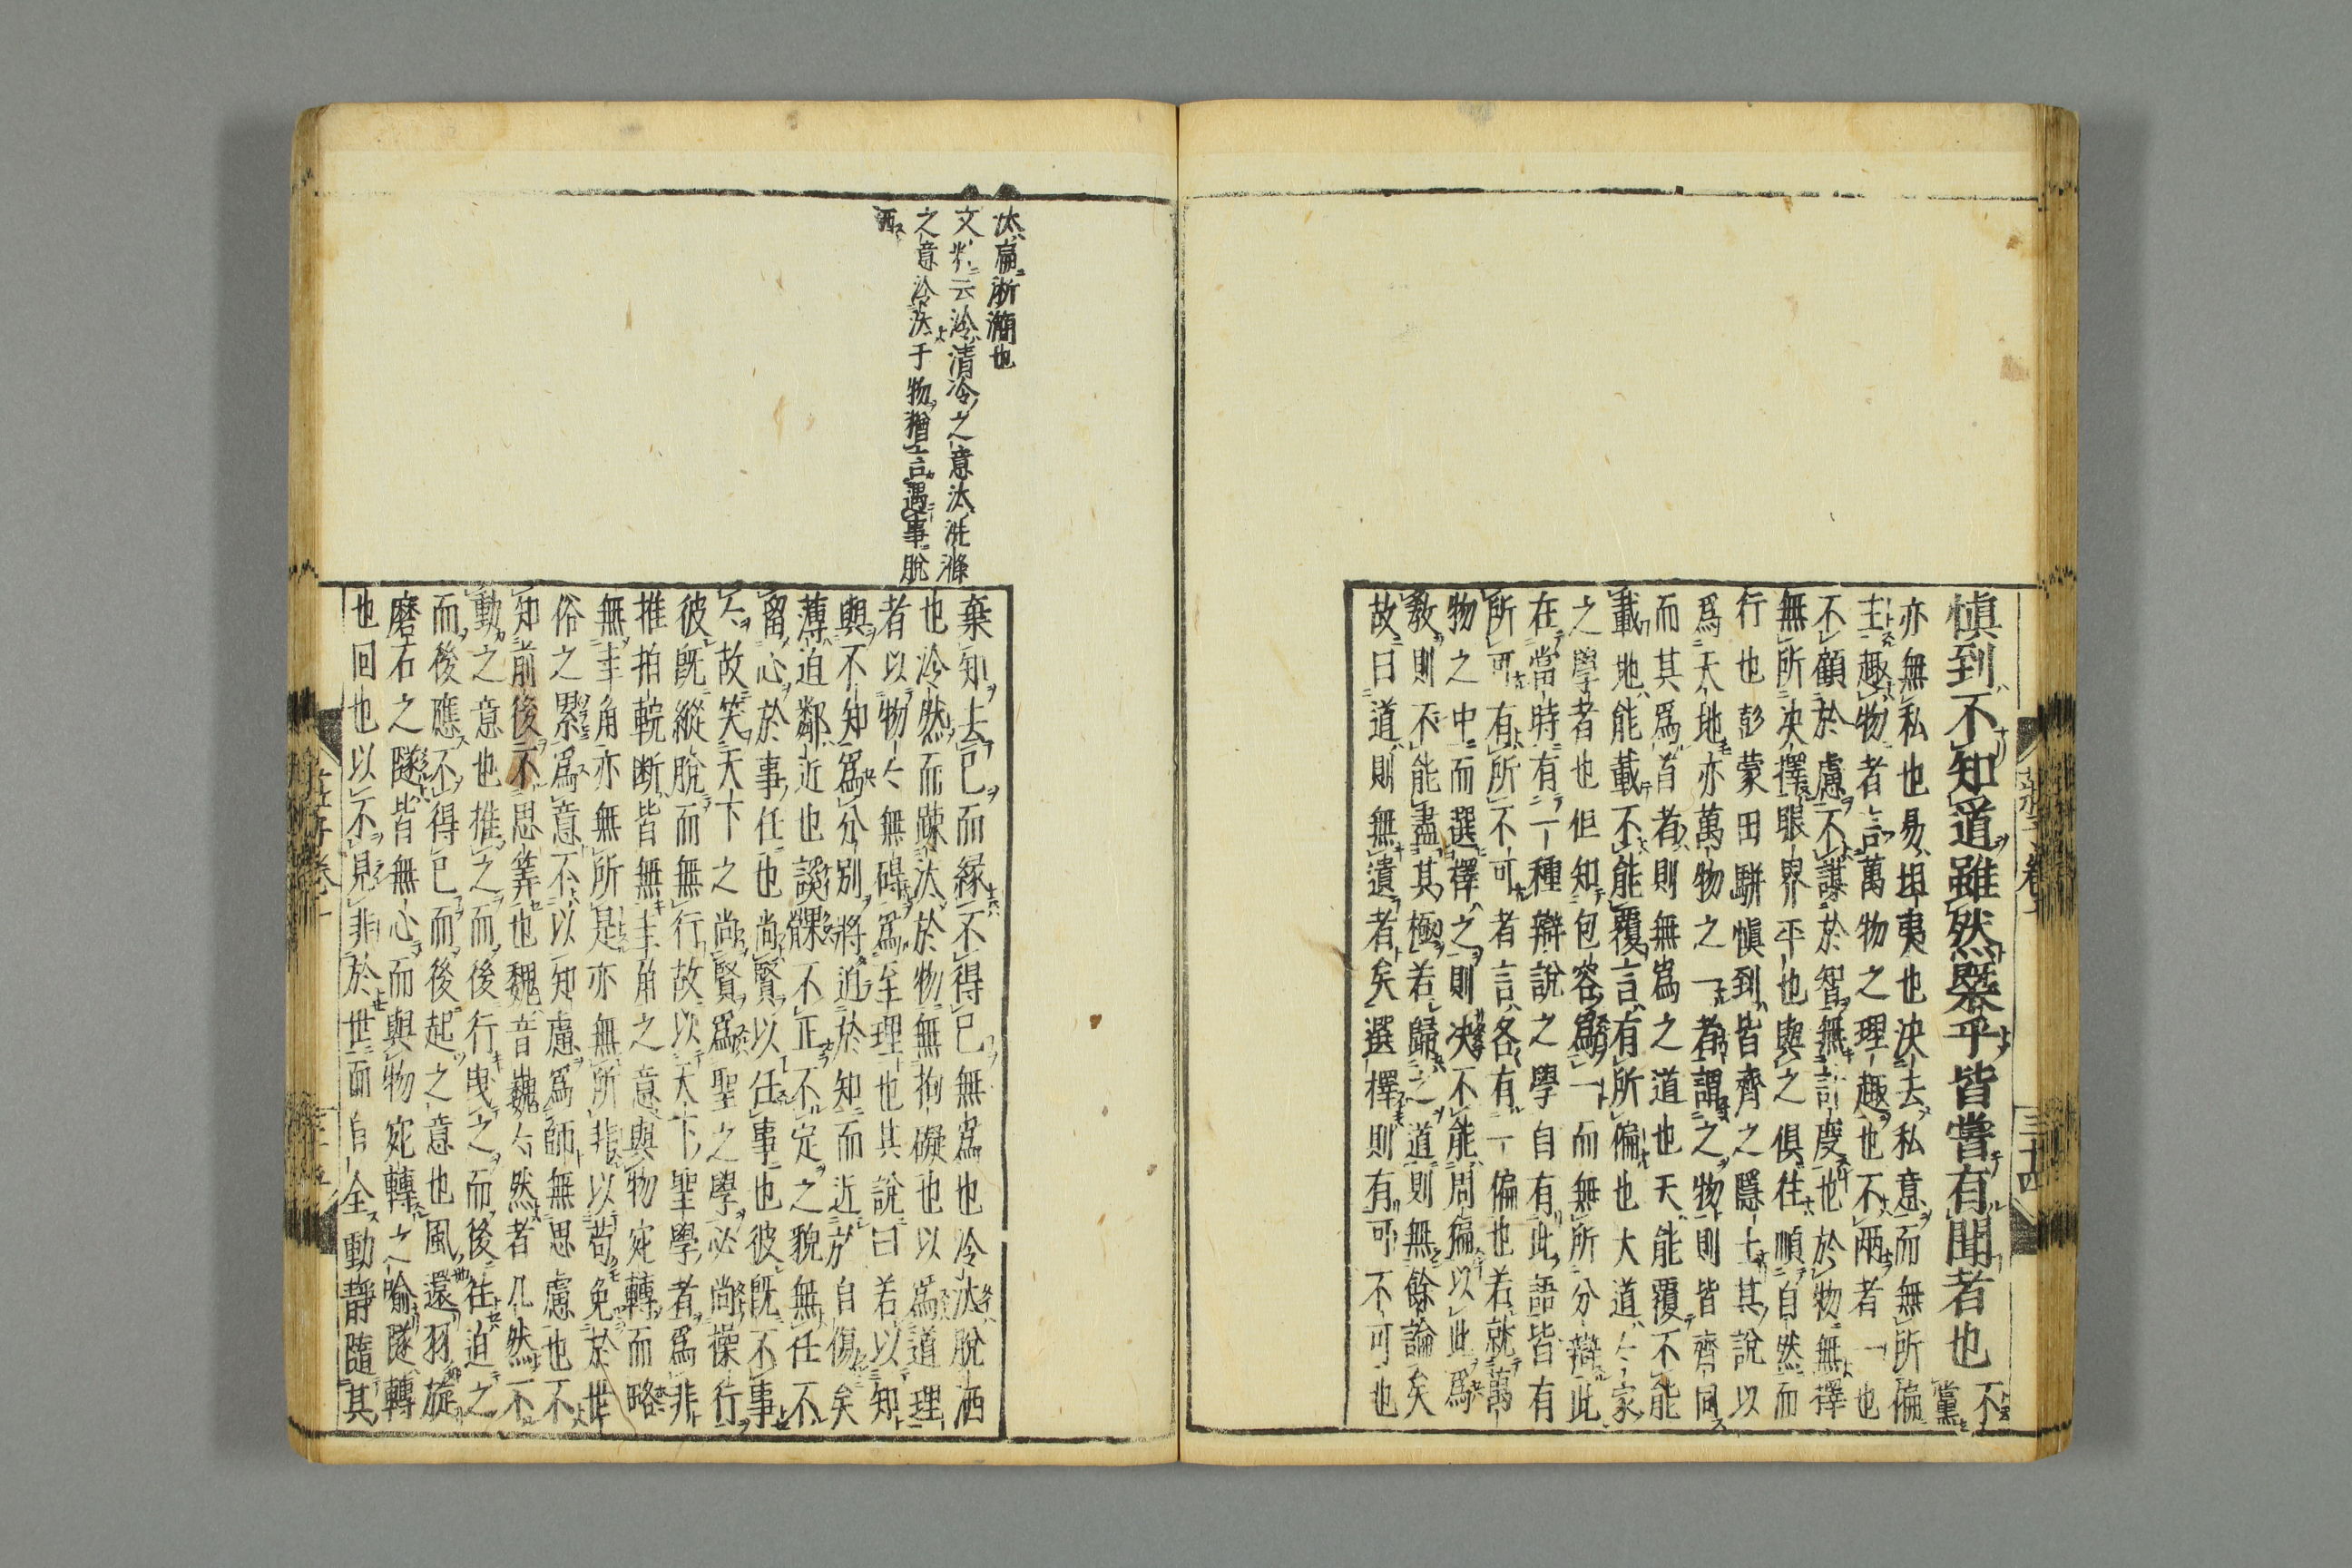 慎到不知道雖然槩乎皆嘗有聞者也
不黨
亦無私也易坦夷也決去私意而無所偏
主趣物者言萬物之理趣也不兩者一也
不顧於慮不謀於智無計度也於物無擇
無所決擇眼界平也與之俱往順自然而
行也彭蒙田駢慎到皆齊之隱士其說以
爲天地亦萬物之一者謂之物則皆齊同
而其爲首者則無爲之道也天能覆不能
載地能載不能覆言有所偏也大道
之學者也但知包容爲一而無所分辯此
在當時有一種辯說之學自有此語皆有
所可有所不可者言各有一偏也若就萬
物之中而選擇之則決不能問徧以此爲
教則不能盡其極若歸之道則無餘論矣
故曰道則無遺者矣選擇則有可不可也
莊子卷十
三十四
汰扁淅𤄃也
文米云泠清泠之意汰洗滌
之意泠汰于物猶言遇事脫
洒
棄知去已而緣不得已無爲也泠汰脫洒
也泠然而疎汰於物無拘礙也以爲道理
者以物物無碍爲至理也其說曰若以知
與不知爲分別將迫於知而近於自傷矣
薄迫鄰近也謑髁不正不定之貌無任不
留心於事任也尚賢以任事也彼既不事
事故笑天下之尚賢爲聖之學必尚操行
彼既縱脫而無行故以天下聖學者爲非
推拍輐斷皆無圭角之意與物宛轉而略
無圭角亦無所是亦無所非以苟免於世
俗之累爲意不以知慮爲師無思慮也不
知前後不思筭也魏音巍巍然者兀然不
動之意也推之而後行曳之而後往迫之
而後應不得已而後起之意也風還羽旋
磨石之隧皆無心而與物宛轉之喻隧轉
也回也以不見非於世而自全動靜隨其
莊子卷十